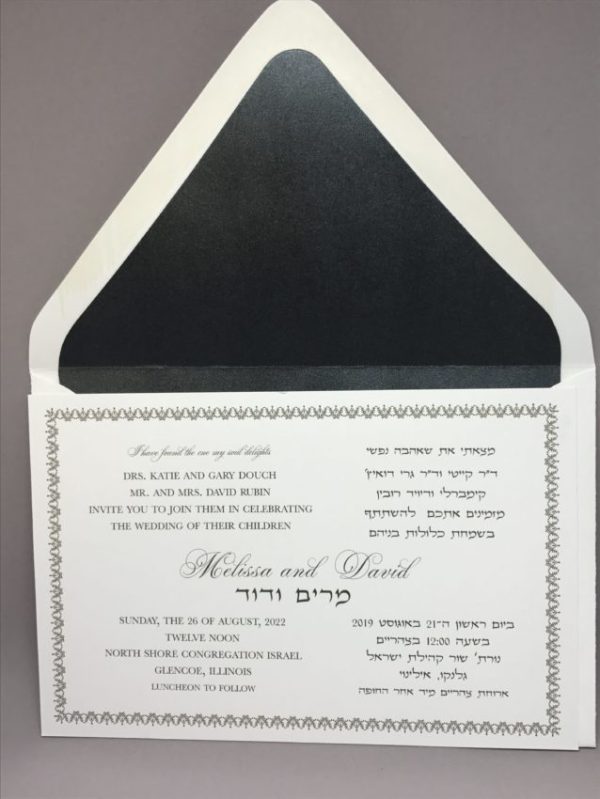 I have found the one my soul delights
DRS. KATIE AND GARY DOUCH
MR. AND MRS. DAVID RUBIN
INVITE YOU TO JOIN THEM IN CELEBRATING
THE WEDDING OF THEIR CHILDREN
מצאתי את שאהבה נפשי
ד״ר קייטי וד״ר גרי דואיץ'
קימברלי ודיויד רובין
מזמינים אתכם להשתתף
בשמחת כלולות בניהם
Melissa and David
מרים ודוד
SUNDAY, THE 26 OF AUGUST, 2022
TWELVE NOON
NORTH SHORE CONGREGATION ISRAEL
GLENCOE, ILLINOIS
LUNCHEON TO FOLLOW
ביום ראשון ה־21 באוגוסט 2019
בשעה 12:00 בצהריים
נורת' שור קהילת ישראל
גלנקו, אילינוי
ארוחת צהריים מיד אחר החופה